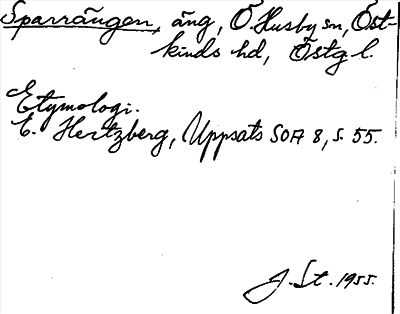 Sparrängen, äng, Ö. Husby sn, Öst-
kinds hd, Östg l.
Etymologi.
E. Hertzberg, Uppsats SOA 8, s. 55.
J. St. 1955.